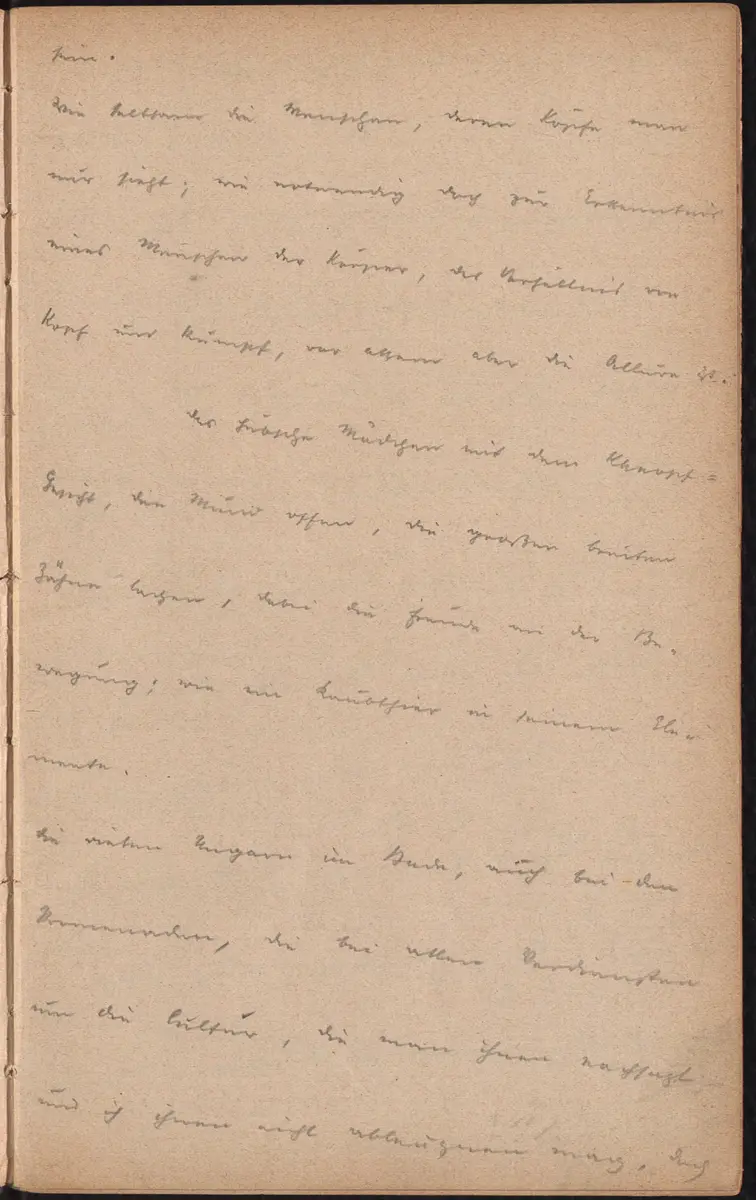 sein.
Wie seltsam die Menschen, deren Köpfe man
nur sieht; wie notwendig doch zur Erkenntnis
eines Menschen der Körper, das Verhältnis von
Kopf und Rumpf, vor allem aber die Allure ist.
Das hübsche Mädchen mit dem Knopf=
Gesicht, den Mund offen, die großen breiten
Zähne lachen, dabei die Freude an der Be-
wegung; wie ein Raubthier in seinem Ele-
mente.
Die vielen Ungarn im Bade, auch bei den
Promenaden, die bei allen Verdiensten
um die Cultur, die man ihnen nachsagt
und ich ihnen nicht ableugnen mag, doch